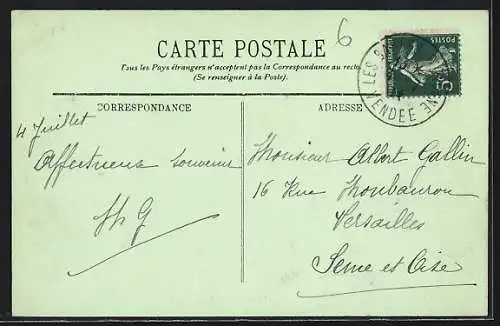 6
CARTE POSTALE
Tous les Pays étrangers n'acceptent pas la Correspondance au recto
(Se renseigner à la Poste).
CORRESPONDANCE
ADRESSE
POSTES
5
LES S
VENDEE
4 Juillet
Affectueux souvenir
Monsieur Albert Gallin
16 Rue
Versailles
Seine et Oise